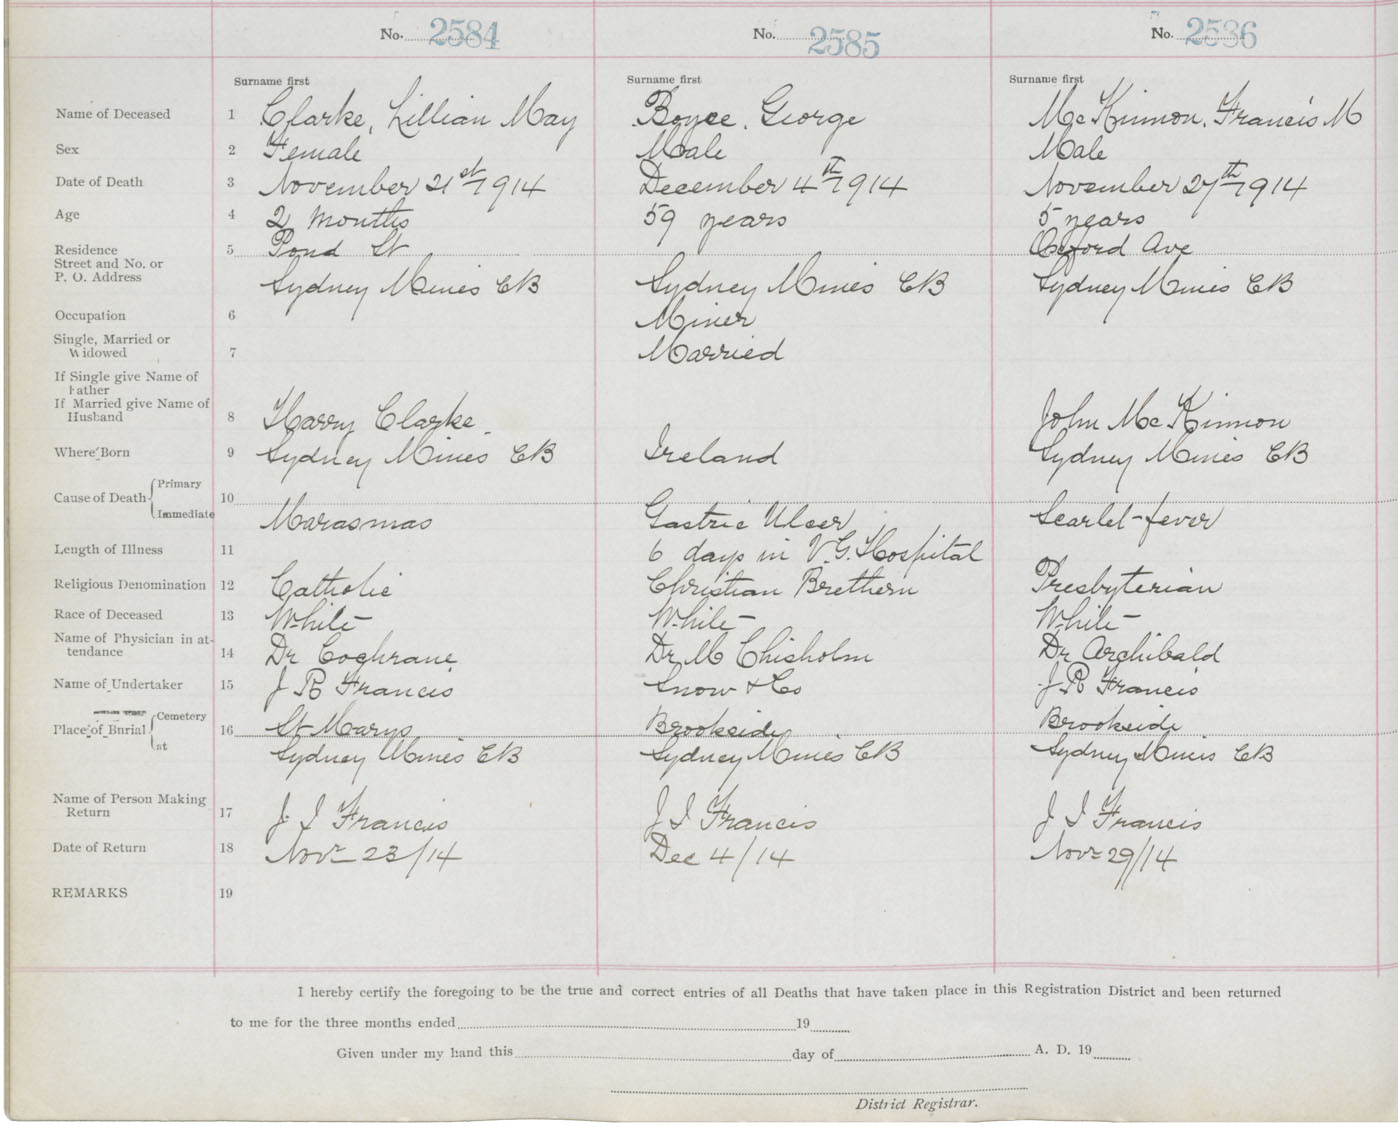 No. 2584 No. 2585 No. 2586
Surname first Surname first Surname first
Name of Deceased 1 Clarke, Lillian May Boyce, George McKinnon, Francis M
Sex 2 Female Male Male
Date of Death 3 November 21st 1914 December 4th 1914 November 27th 1914
Age 4 2 Months 59 years 5 years
Residence 5 Pond St Oxford Ave
Street and No. or
P. O. Address Sydney Mines CB Sydney Mines CB Sydney Mines CB
Occupation 6 Miner
Single, Married or
Widowed 7 Married
If Single give Name of
Father
If Married give Name of
Husband 8 Harry Clarke. John McKinnon
Where Born 9 Sydney Mines CB Ireland Sydney Mines CB
Cause of Death Primary 10
Immediate Marasmas Gastric Ulcer Scarlet-fever
Length of Illness 11 6 days in V.G. Hospital
Religious Denomination 12 Catholic Christian Brethern Presbyterian
Race of Deceased 13 White White White
Name of Physician in at-
tendance 14 Dr Cochrane Dr M Chisholm Dr Archibald
Name of Undertaker 15 J R Francis Snow & Co J R Francis
Place of Burial Cemetery 16 St Marys Brookside Brookside
at Sydney Mines CB Sydney Mines CB Sydney Mines CB
Name of Person Making
Return 17 J. I Francis J I Francis J I Francis
Date of Return 18 Novr 23/14 Dec 4/14 Novr 29/14
REMARKS 19
I hereby certify the foregoing to be the true and correct entries of all Deaths that have taken place in this Registration District and been returned
to me for the three months ended 19
Given under my hand this day of A. D. 19
District Registrar.